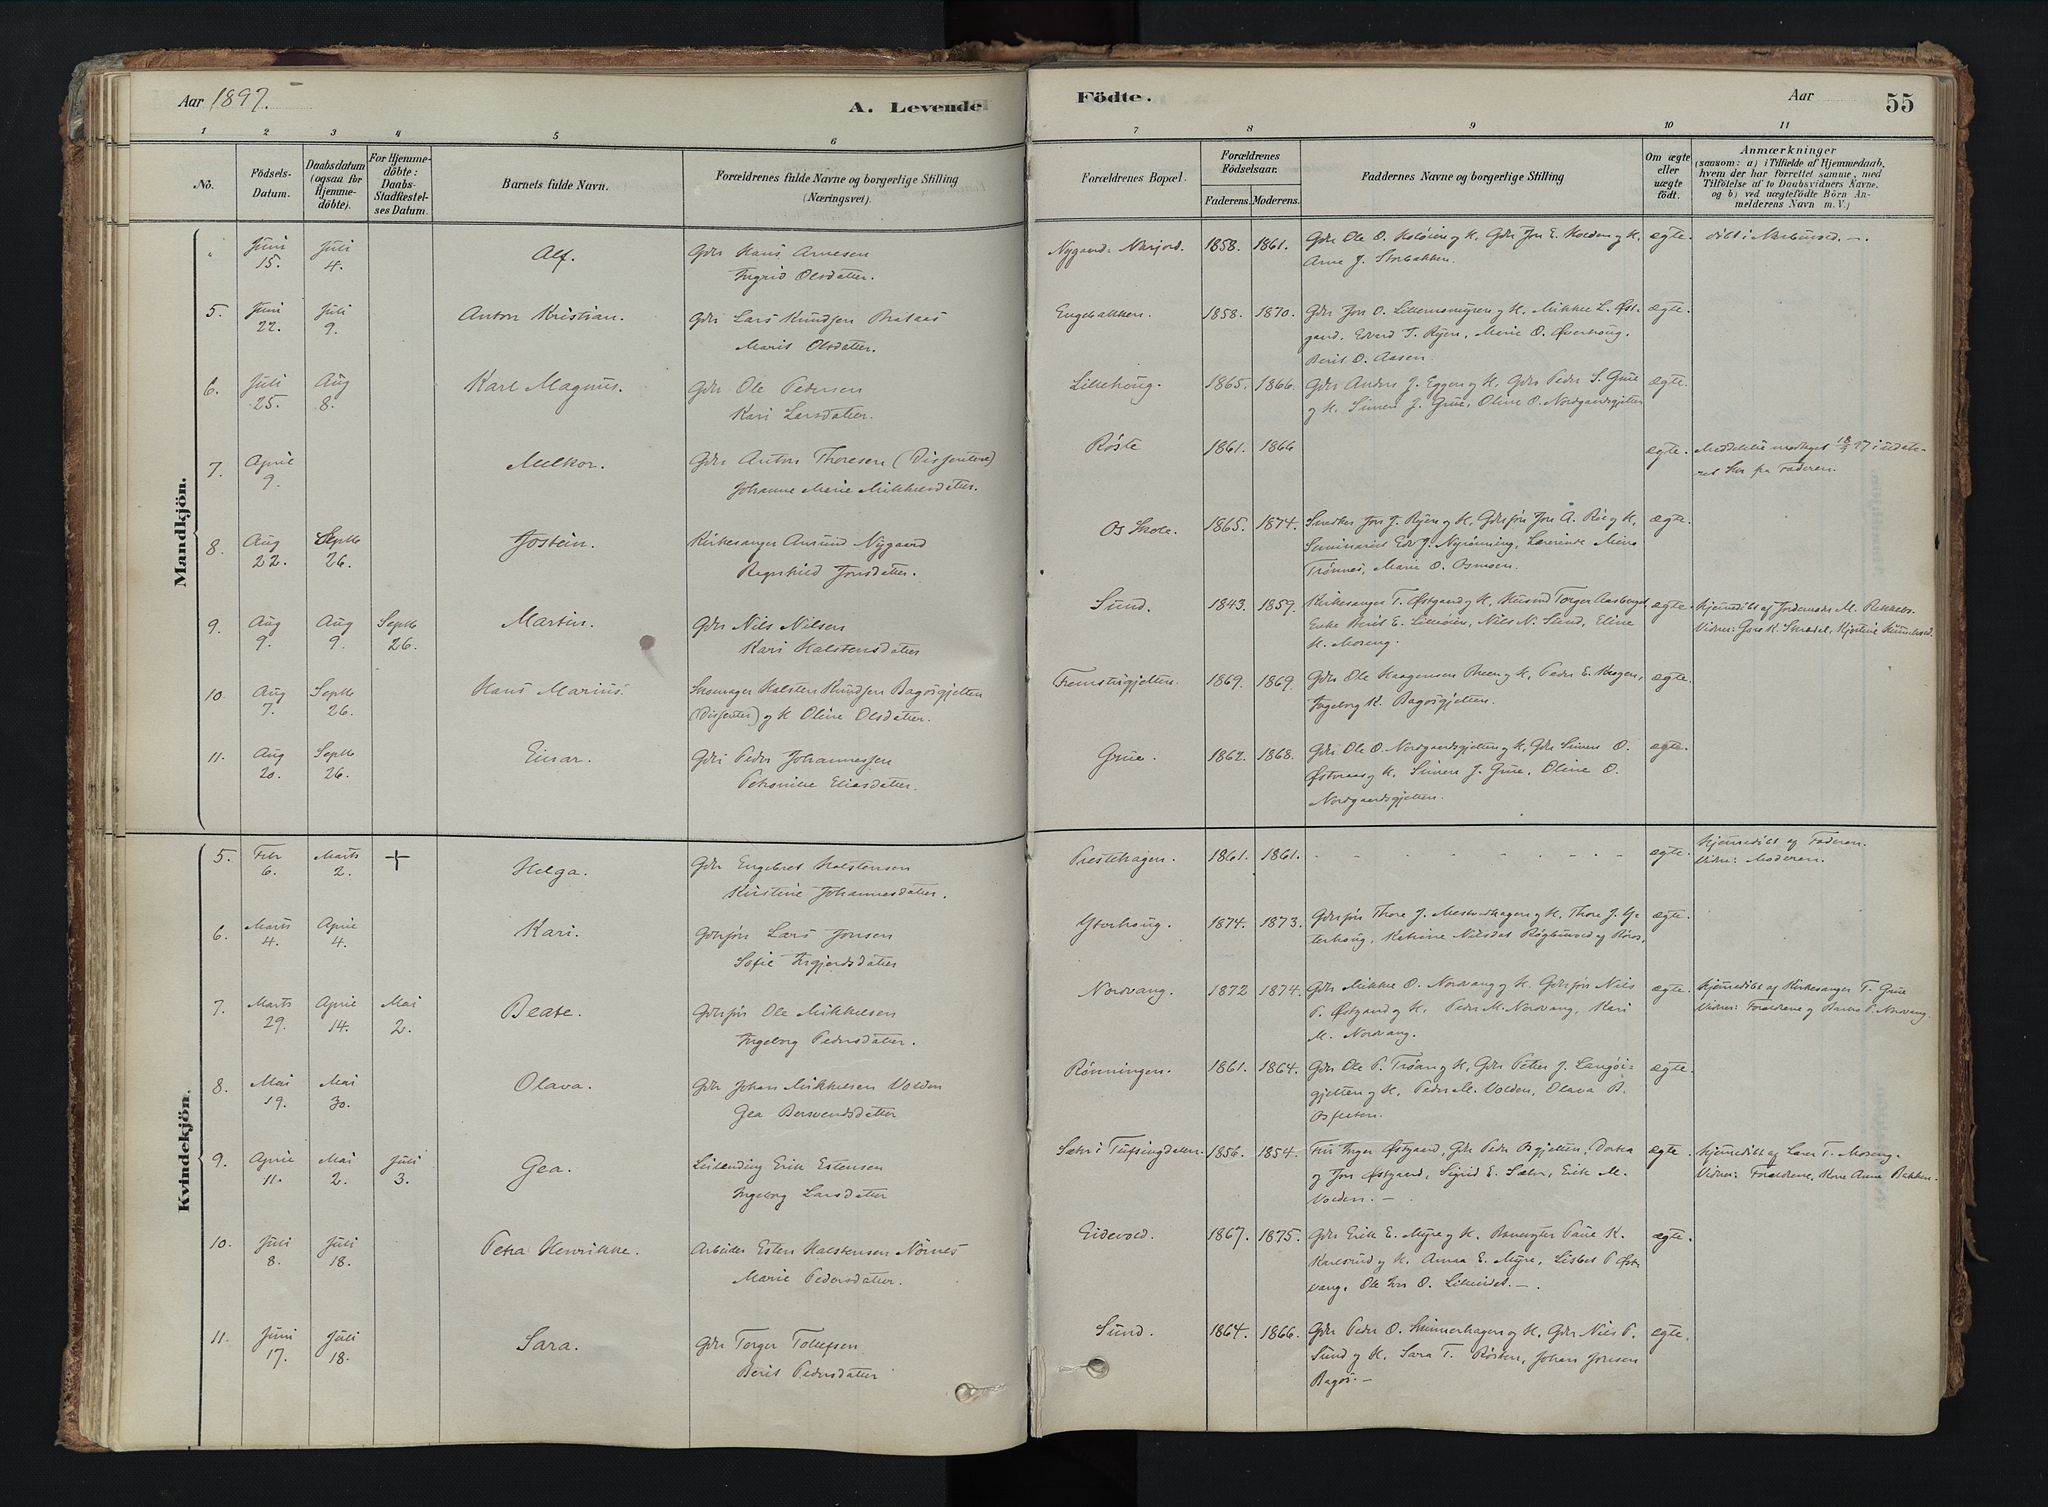 Aar 1897.
A. Levende
Födte.
Aar
55
1 2 3 4 5 6 7 8 9 10 11
No.
Födsels-
Datum.
Daabsdatum
(ogsaa for
Hjemme-
döbte).
For Hjemme-
döbte:
Daabs-
Stadfæstel-
ses Datum.
Barnets fulde Navn.
Forældrenes fulde Navne og borgerlige Stilling
(Næringsvei).
Forældrenes Bopæl.
Forældrenes
Födselsaar.
Faderens. Moderens.
Faddernes Navne og borgerlige Stilling
Om ægte
eller
uægte
födt.
Anmærkninger
(saasom: a) i Tilfælde af Hjemmedaab,
hvem der har forrettet samme, med
Tilföielse af to Daabsvidners Navne,
og b) ved uægtefödte Börn An-
melderens Navn m. V.)
Mandkjön.
Juni 15. Juli 4. Alf. Gdr Hans Arnesen
Ingrid Olsdatter
Nygaard. 1858. 1861. Gdr Ole O. og K. Gdr Jon E. Holden og K. ægte.
Arne J. Storbakken.
5. Juni 22. Juli 9. Anton Kristian. Gdr Lars Knudsen Brataas
Marit Olsdatter.
Engebakken. 1858. 1870. Gdr Jon O. og K. Mikkel L. Øst- ægte.
gaard, Edvard J. Ryen, Marie O. Øverhoug,
Berit O. Aasen.
6. Juli 25. Aug 8. Karl Magnus. Gdr Ole Pedersen
Kari Larsdatter.
Lillehoug. 1865. 1866. Gdr Anders J. Eggen og K. Gdr Peder S. Grue ægte.
og K. Simen J. Grue, Oline O. Nordgaardsgjelten
7. April 9. Melkor. Gdr Anton Thoresen (Dissentere)
Johanne Marie Mikkelsdatter.
Røste 1861. 1866 ægte. Meddelelse modtaget 18/5 97 i
fra Faderen.
8. Aug 22. Septb 26. Jostein. Kirkesanger Amund Nygaard
Ragnhild Jonsdatter.
Os Skole. 1865. 1874. Snedker Jon J. Ryen og K. Gdrsøn Jon A. Røe og K. ægte.
Seminarist Edv J. Nyrønning, Lærerinde
Trønnes, Marie O. Osmoen.
9. Aug 9. Aug 9. Septb 26. Martin. Gdr Nils Nilsen
Kari Halstensdatter
Sund. 1843. 1859. Kirkesanger T. Østgaard og K. Husmd Torger Aasberget, ægte. Hjemmedøbt af Jordemoder M.
Enke Berit E. Lilleøien, Nils N. Sund, Eline
K. Moseng.
Vidner: Jons K. Kjerstine
10. Aug 7. Septb 26. Hans Marius. Skomager Halsten Knudsen Bagøsgjelten
(Dissenter) og K Oline Olsdatter.
1869. 1869. Gdr Ole Haagensen og K. Peder E. ægte.
Ingeborg K. Bagøsgjelten.
11. Aug 20. Septb 26. Einar. Gdr Peder Johannessen
Petronille Eliasdatter.
Grue. 1862. 1868. Gdr Ole O. Nordgaardsgjelten og K. Gdr Simen O. ægte.
Østeraas og K. Simen J. Grue, Oline O.
Nordgaardsgjelten.
Kvindekjön.
5. Febr 6. Marts 2. + Helga. Gdr Engebret Halstensen
Kirstine Johannesdatter.
Prestehagen. 1861. 1861. ægte. Hjemmedøbt af Faderen.
Vidne: Moderen.
6. Marts 4. April 4. Kari. Gdrsøn Lars Jonsen
Sofie Ingjerdsdatter
Yterhoug. 1874. 1873. Gdrsøn Thore J. og K. Thore J. Y- ægte.
terhoug, Katrine Nilsdat af Røros.
7. Marts 29. April 14. Mai 2. Beate. Gdrsøn Ole Mikkelsen
Ingeborg Pedersdatter.
Nordvang. 1872 1874. Gdr Mikkel O. Nordvang og K. Gdrsøn Nils ægte Hjemmedøbt af Kirkesanger T. Grue
P. Østgaard og K. Peder M. Nordvang, Kari
M. Nordvang.
Vidner: Forældrene og P. Nordvang.
8. Mai 19. Mai 30. Olava. Gdr Johan Mikkelsen Volden
Gea Bersvendsdatter
Rønningen. 1861. 1864. Gdr Ole P. Trøan og K. Gdr Petter J. Langøi- ægte.
gjelten og K. Peder M. Volden, Olava B.
Osfloten.
9. April 11. Mai 2. Juli 3. Gea. Leilending Erik Estensen
Ingeborg Larsdatter
Sæter i Tufsingdalen. 1856. 1854. Inger Østgaard, Gdr Peder Osgjelten, Dorthea ægte. Hjemmedøbt af Lærer T. Moseng.
og Jon Østgaard, Sigrid E. Sæter, Erik M.
Volden. —
Vidner: Forældrene, Kone Anne Bakken.
10. Juli 8. Juli 18. Petra Henrikke. Arbeider Esten Halstensen Nørnes
Marie Pedersdatter.
Eidsvold. 1867. 1875. Gdr Erik E. Myre og K. Banevogter Paul K. ægte.
Karlsrud og K. Anna E. Myre, Lisbet P Øst-
vang, Ole O. —
11. Juni 17. Juli 18. Sara. Gdr Torger Tollefsen
Berit Pedersdatter
Sund. 1864. 1866. Gdr Peder O. og K. Gdr Nils P. ægte.
Sund og K. Sara T. Røsten, Johan Jonsen
Bagøs. —